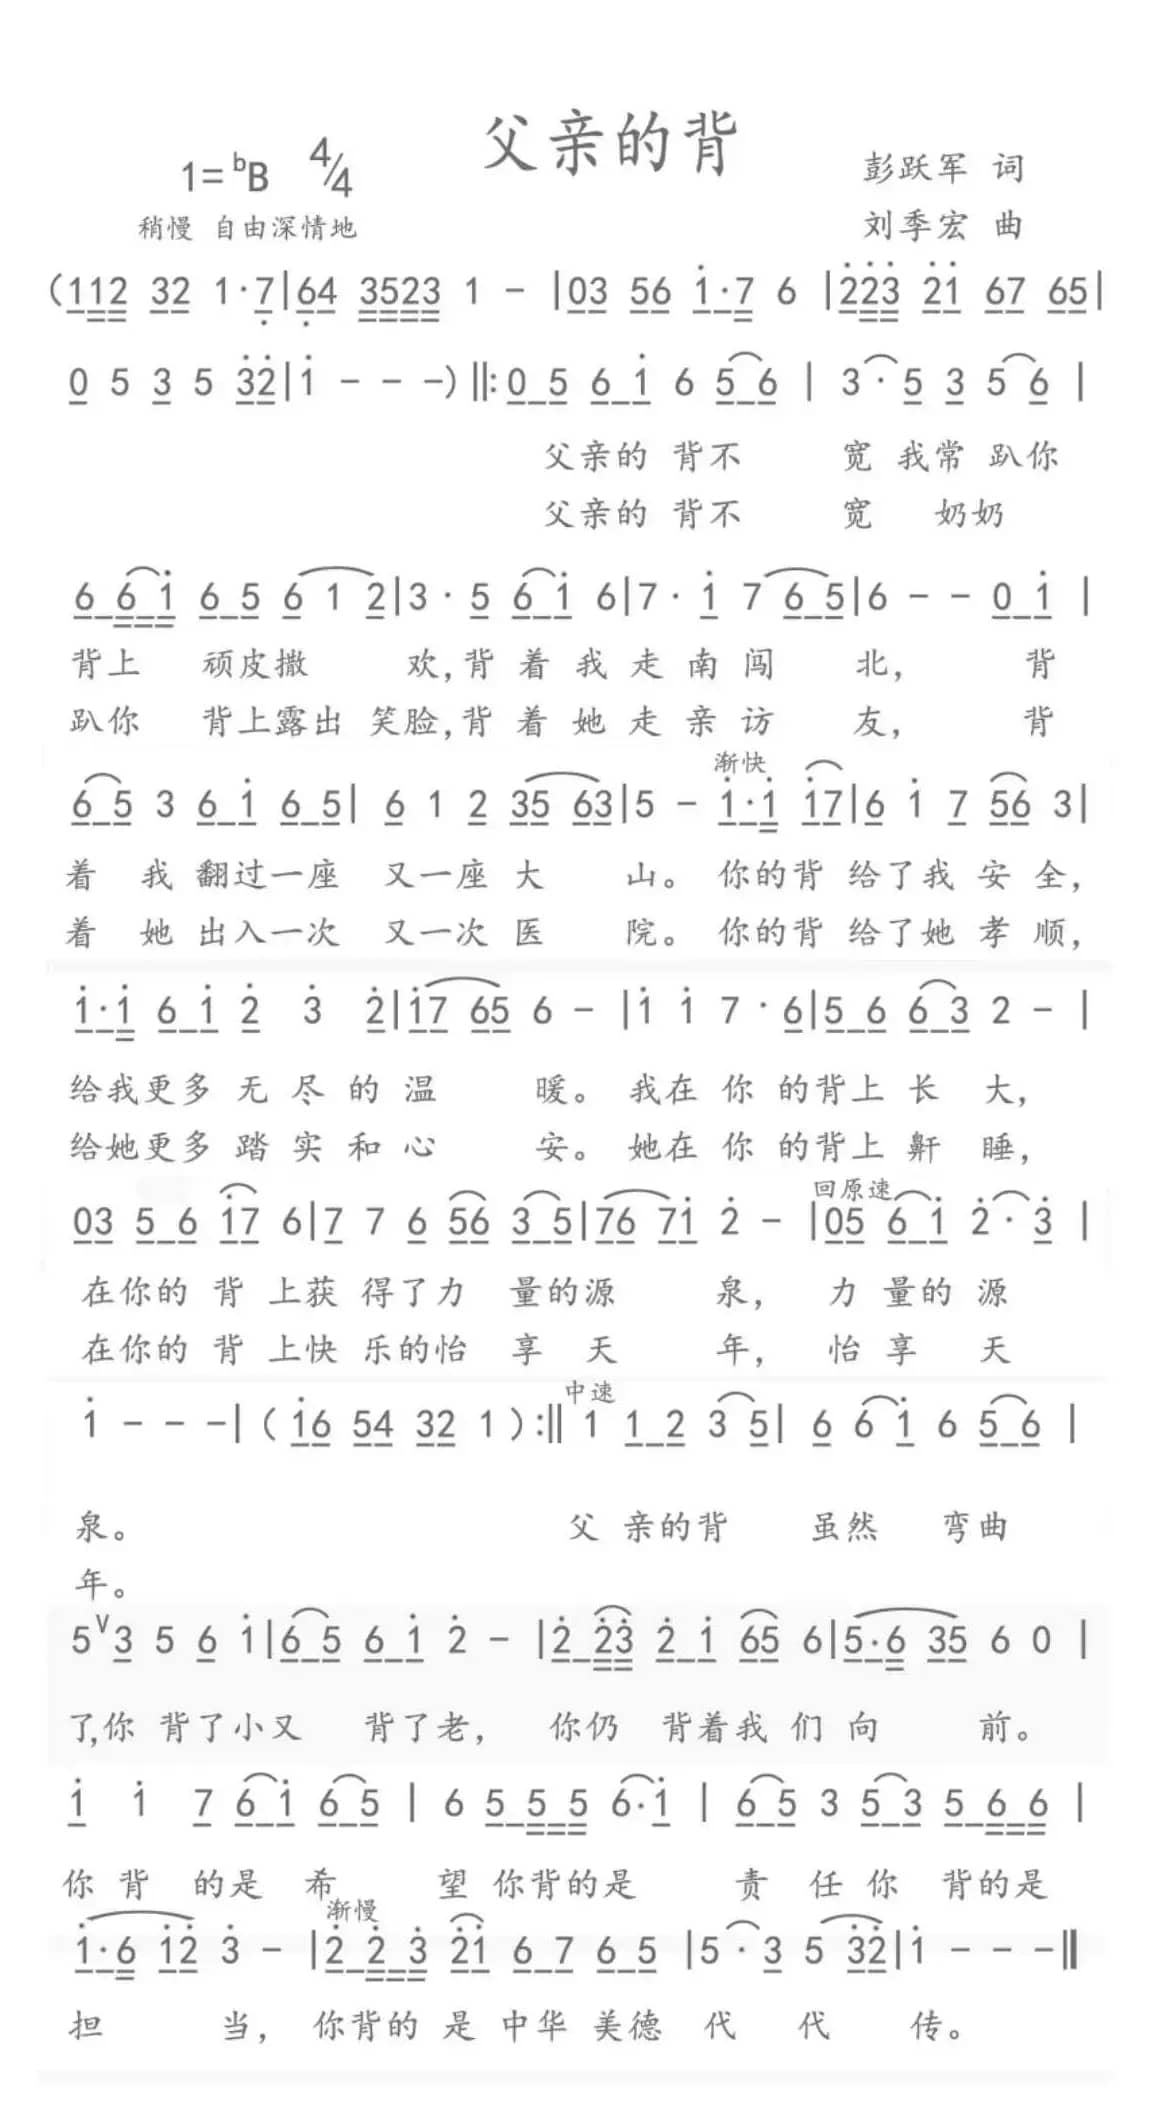 父亲的背
1=bB 4/4
彭跃军 词
稍慢 自由深情地
刘季宏 曲
(112 32 1·7|64 3523 1 - |03 56 1·7 6 |223 21 67 65|
0 5 3 5 32|1 - - -)||:0 5 6 1 6 5 6 | 3·5 3 5 6 |
父亲的 背不 宽 我常 趴你
父亲的 背不 宽 奶奶
6 6 1 6 5 6 1 2|3·5 6 1 6|7·1 7 6 5|6 - - 0 1 |
背上 顽皮撒 欢,背 着 我 走 南 闯 北, 背
趴你 背上露出 笑脸,背 着 她 走 亲 访 友, 背
渐快
6 5 3 6 1 6 5| 6 1 2 35 63|5 - 1·1 17|6 1 7 56 3|
着 我 翻过一座 又一座 大 山。 你的背 给了我 安 全,
着 她 出入一次 又一次 医 院。 你的背 给了她 孝 顺,
1·1 6 1 2 3 2|17 65 6 - |1 1 7·6|5 6 6 3 2 - |
给我更多 无 尽 的 温 暖。 我在 你 的背上 长 大,
给她更多 踏 实 和 心 安。 她在 你 的背上 鼾 睡,
回原速
03 5 6 17 6|7 7 6 56 3 5|76 71 2 - |05 6 1 2·3 |
在你的 背 上获 得了力 量的源 泉, 力 量的 源
在你的 背 上快 乐的怡 享 天 年, 怡 享 天
中速
1 - - -|( 16 54 32 1 ):|| 1 1 2 3 5| 6 6 1 6 5 6 |
泉。 父 亲的背 虽然 弯曲
年。
5 V 3 5 6 1|6 5 6 1 2 - |2 23 2 1 65 6|5·6 35 6 0 |
了,你 背了小又 背了老, 你仍 背着我 们 向 前。
1 1 7 6 1 6 5 | 6 5 5 5 6·1 | 6 5 3 5 3 5 6 6 |
你 背 的是 希 望 你背的是 责 任 你 背的是
渐慢
1·6 12 3 - |2 2 3 21 6 7 6 5 |5·3 5 32|1 - - -||
担 当, 你背的 是 中华 美德 代 代 传。